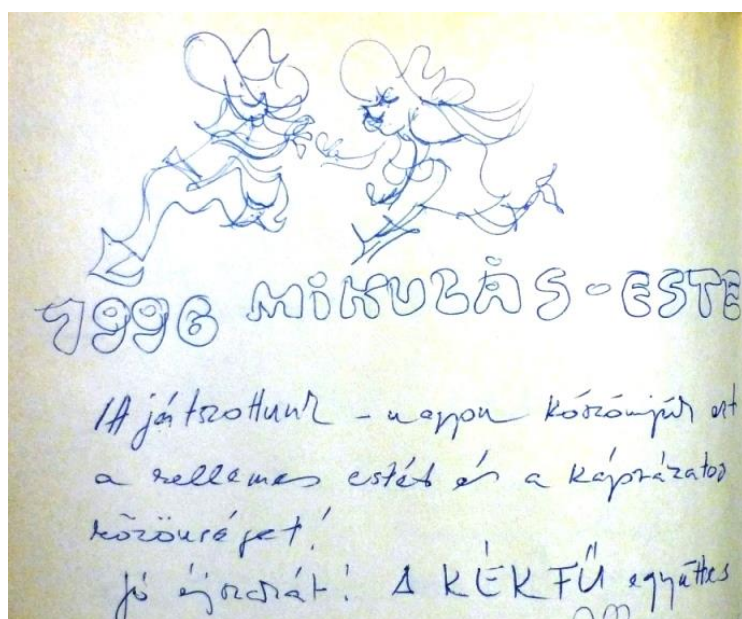 1996 MIKULÁS-ESTE
Itt játszottunk - nagyon köszönjük ezt
a kellemes estét és a káprázatos
közönséget!
Jó éjszakát! A KÉKFŰ együttes